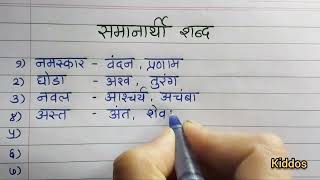 समानार्थी शब्द
१) नमस्कार - वंदन, प्रणाम
२) घोडा - अश्व, तुरंग
३) नवल - आश्चर्य, अचंबा
४) अस्त - अंत, शेव
५)
६)
७)
Kiddos